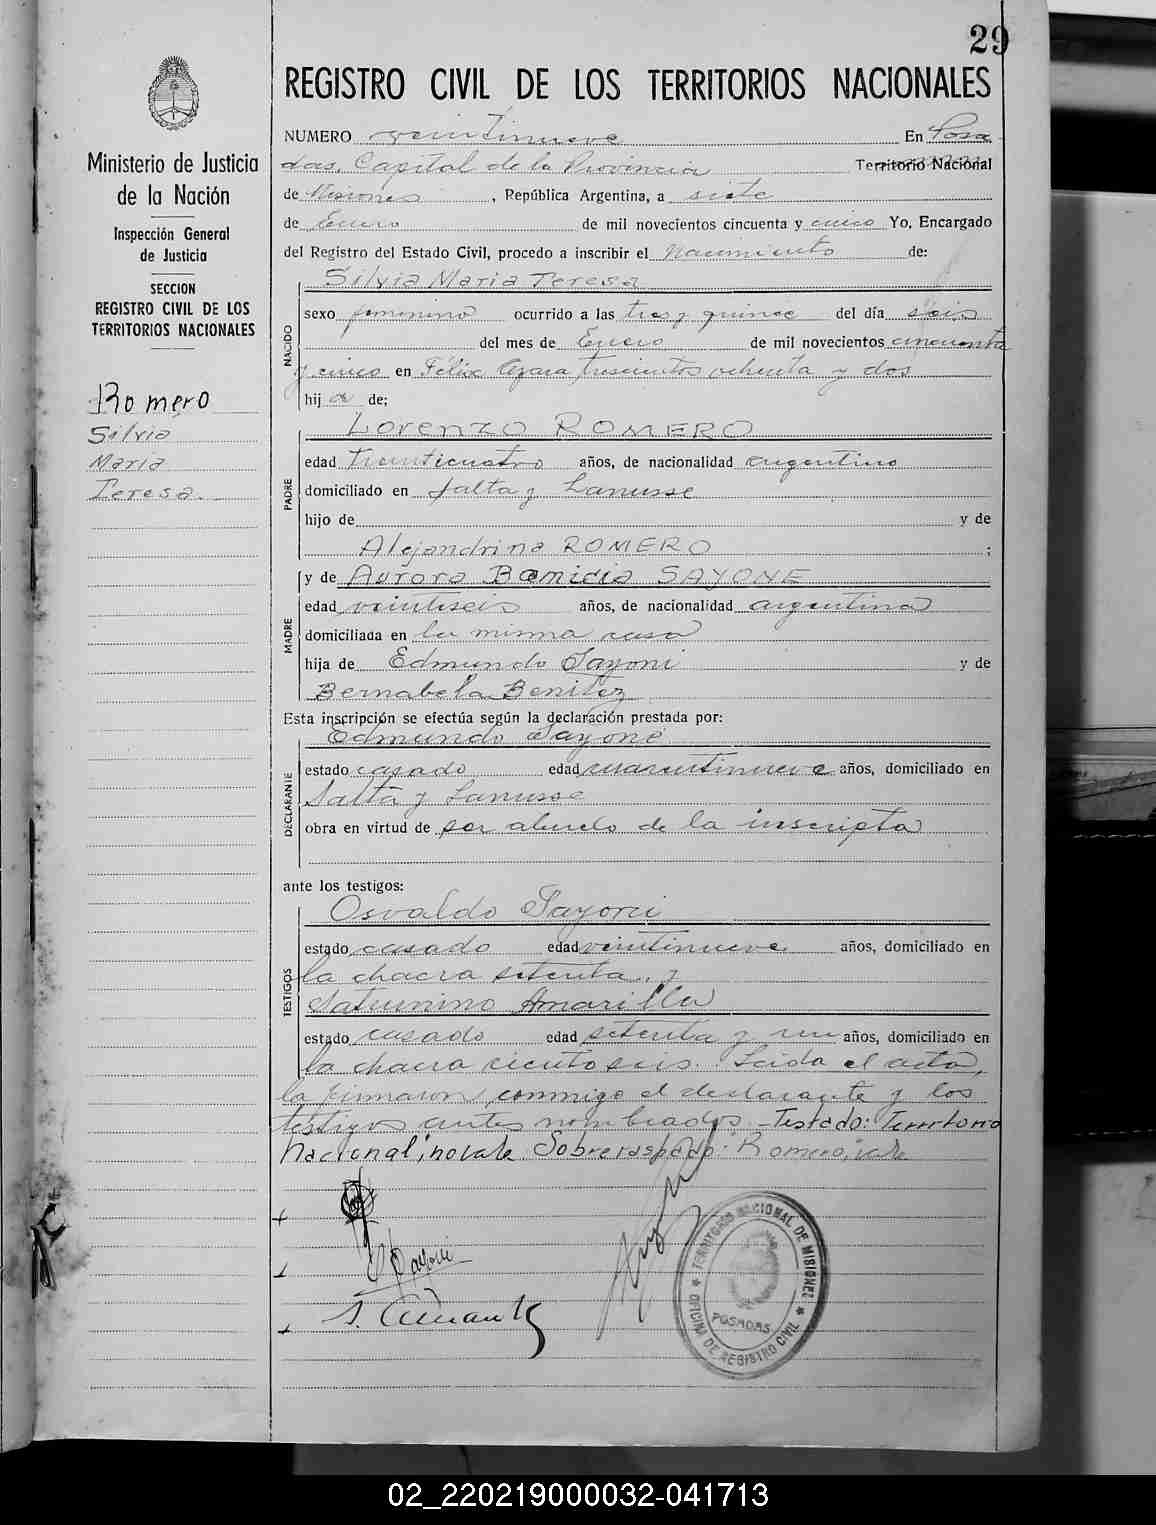 29
REGISTRO CIVIL DE LOS TERRITORIOS NACIONALES
Ministerio de Justicia
de la Nación
Inspección General
de Justicia
SECCION
REGISTRO CIVIL DE LOS
TERRITORIOS NACIONALES
Romero
Silvia
Maria
Teresa.
NUMERO veintinueve En Posa
das, Capital de la Provincia Territorio Nacional
de Misiones, República Argentina, a siete
de Enero de mil novecientos cincuenta y cinco Yo, Encargado
del Registro del Estado Civil, procedo a inscribir el nacimiento de:
Silvia Maria Teresa
NACIDO
sexo femenino ocurrido a las tres y quince del día seis
del mes de Enero de mil novecientos cincuenta
y cinco en Félix Azara trescientos ochenta y dos
hija de;
Lorenzo ROMERO
PADRE
edad treinticuatro años, de nacionalidad argentino
domiciliado en Salta y Lanusse
hijo de y de
Alejandrina ROMERO ;
y de Aurora SAYONE
MADRE
edad veintiseis años, de nacionalidad argentina
domiciliada en la misma casa
hija de Edmundo Sayoni y de
Bernabela Benitez
Esta inscripción se efectúa según la declaración prestada por:
Edmundo Sayone
DECLARANTE
estado casado edad cuarentinueve años, domiciliado en
Salta y Lanusse
obra en virtud de ser abuelo de la inscripta
ante los testigos:
Osvaldo Sayoni
TESTIGOS
estado casado edad veintinueve años, domiciliado en
la chacra setenta, y
Saturnino Amarilla
estado casado edad setenta y un años, domiciliado en
la chacra ciento seis. Leida el acta,
la firmaron conmigo el declarante y los
testigos antes nombrados. -Testado: Territorio
Nacional, no vale. Sobreraspado: Romero, vale
TERRITORIO NACIONAL DE MISIONES
POSADAS
OFICINA DE REGISTRO CIVIL
02_220219000032-041713